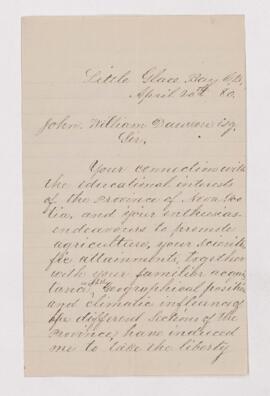 Little Glace Bay
April 20th 80.
John William Dawson Esq.
Sir,
Your connection with
the educational interests
of the Province of Nova Sco
tia, and your enthusias
endeavours to promote
agriculture, your scienti
fic attainments, together
with your familiar acqu
tance with Geographical position
and climatic influence of
the different Sections of the
Province, have induced
me to take the liberty